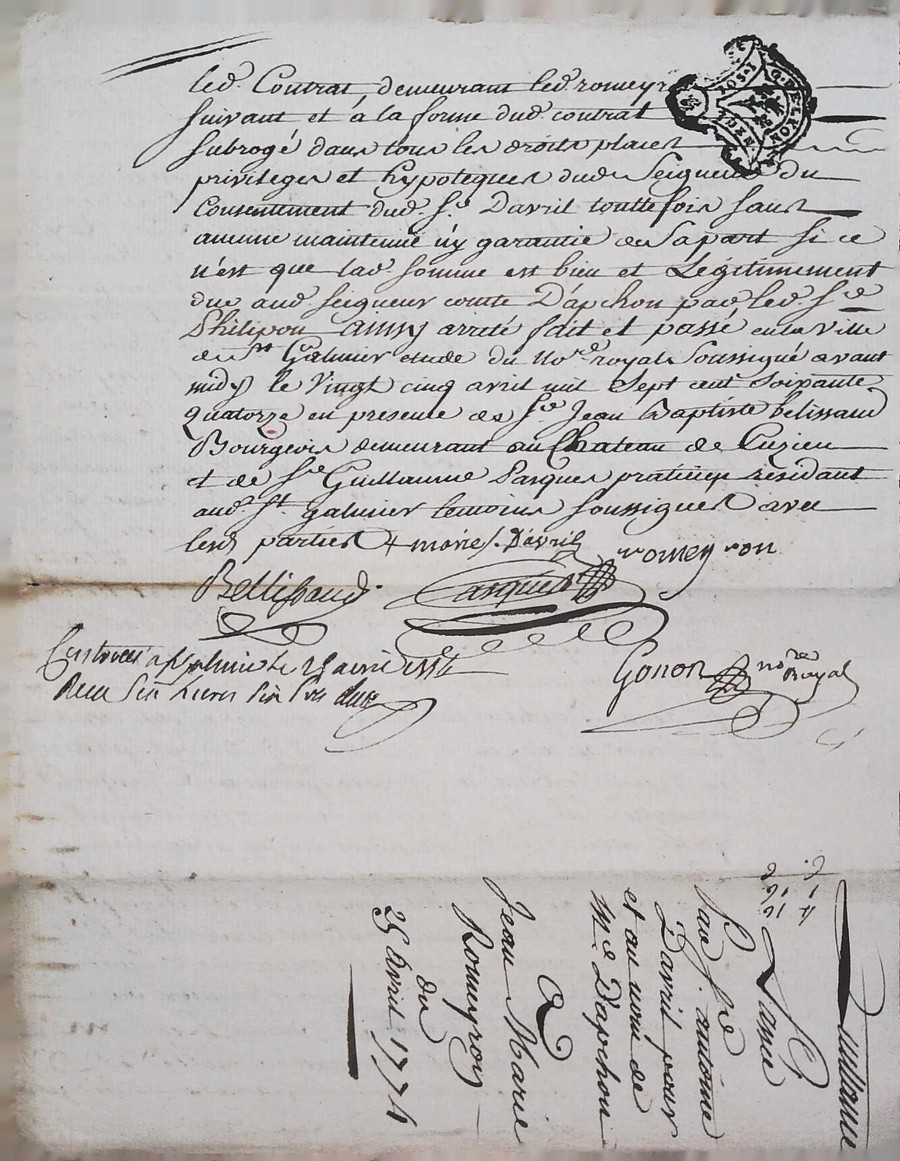 led. Contrat, demeurant led. romeyron
suivant et à la forme dud. contrat
subrogé dans tous les droits places
privileges et hypoteques dud. Seigneur du
Consentement dud. Sr. Davril touttefois sans
aucune maintenüe n'y garantie de Sa part si ce
n'est que lad. somme est bien et Légitimement
due aud. seigneur comte D'apchon par led. Sr
Philipon ainsy arreté fait et passé en la ville
de St Galmier etude du Nore royal Soussigné avant
midy le Vingt cinq avril mil Sept cent Soixante
Quatorze en presence de Sr Jean Baptiste belissand
Bourgeois demeurant au Chateau de Cuzieu
et de Sr Guillaume Parques praticien résidant
aud. St. galmier temoins soussignes avec
lesd parties
Davril romeyron
Bellissaud. Parques
Controllé a St galmier Le 25 avril 1774
Recu Six Livres Six sols
Gonon nore Royal
G. DE LYON
Quittance
Par Sr antoine
Davril pour
et au nom de
Mr. D'apchon
A
Jean Marie
Romeyron
du
25 Avril 1774